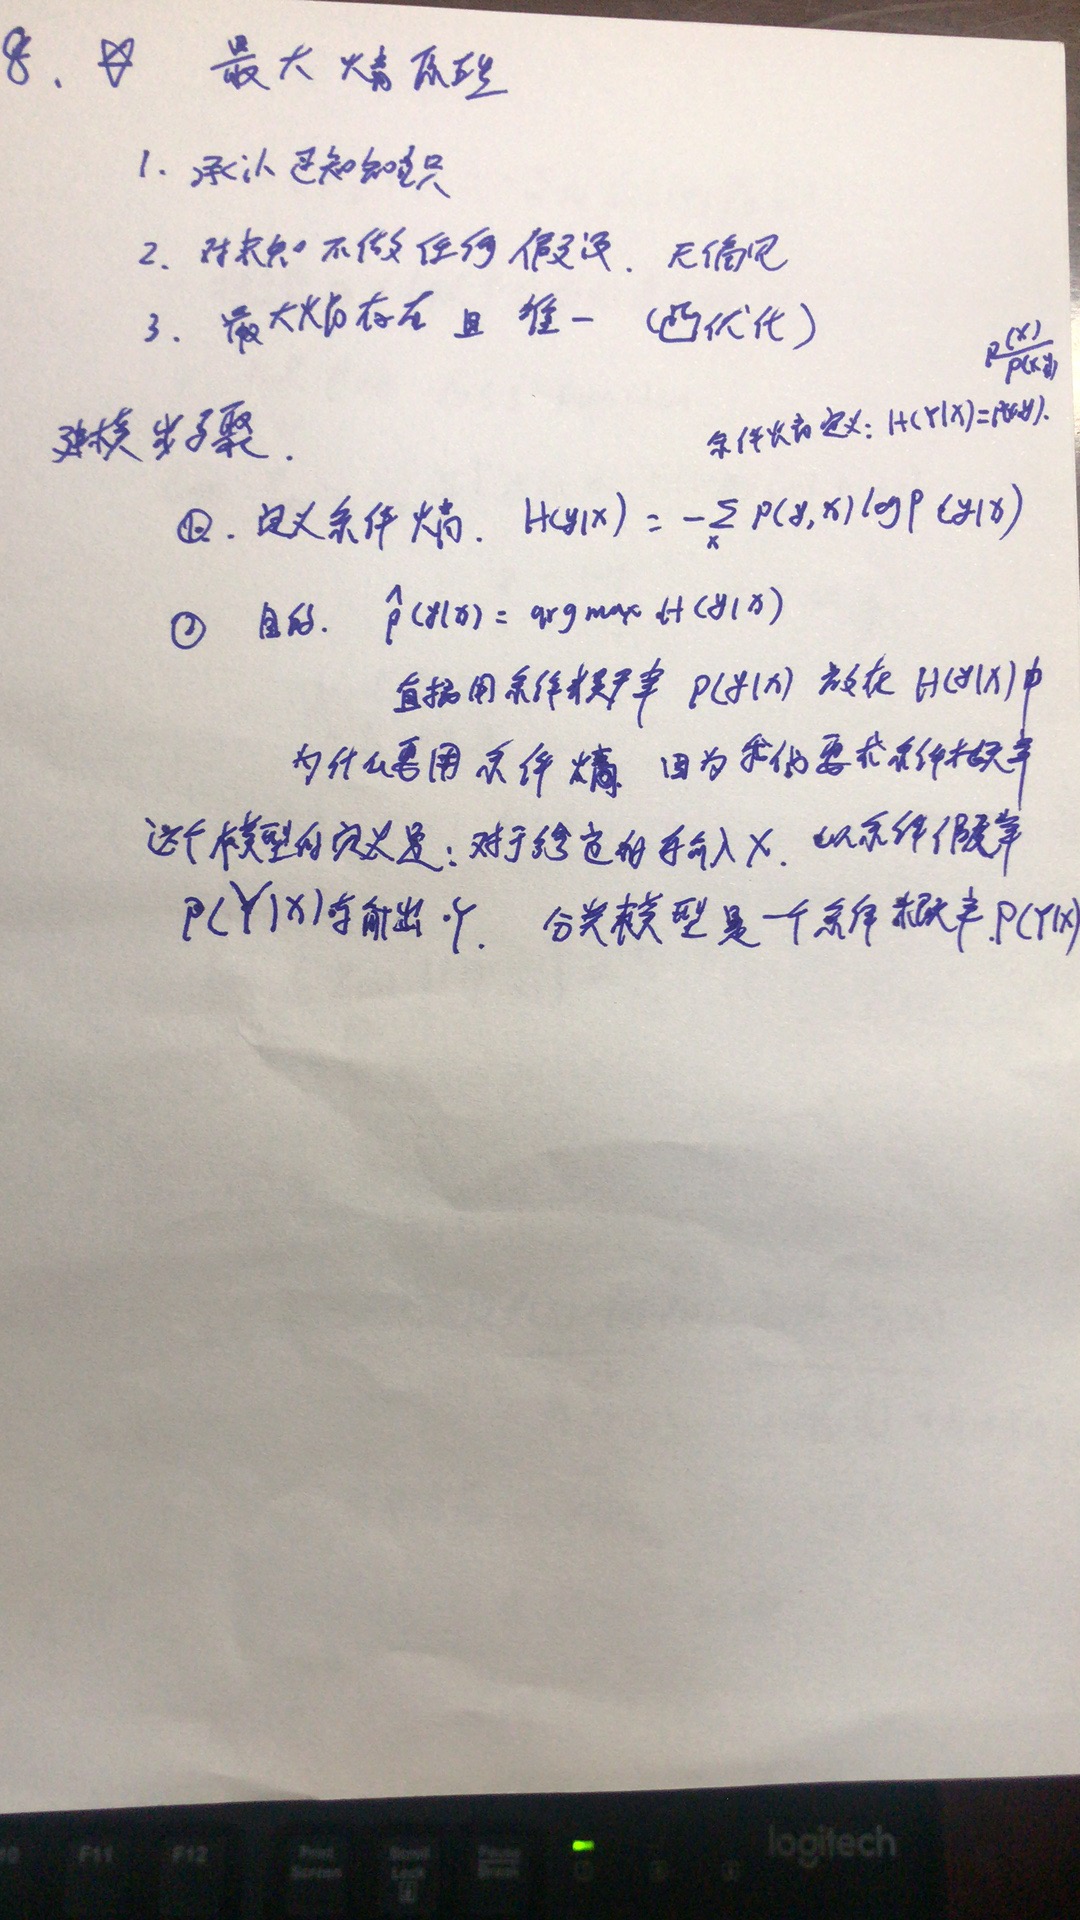 8. ☆ 最大熵原理
1. 承认已知知识
2. 对未知不做任何假设. 无偏见
3. 最大熵存在且唯一 (凸优化)
P(X)
P(XY)
建模步骤.
条件熵定义: H(Y|X)=P(x,y).
①. 定义条件熵. H(y|x) = -∑ P(y,x) log P(y|x)
x
② 目的. p̂(y|x) = argmax H(y|x)
直接用条件概率 P(y|x) 放在 H(y|x)中
为什么要用条件熵 因为我们要求条件概率
这个模型的定义是: 对于给定的输入X. 以条件概率
P(Y|X)输出Y. 分类模型是一个条件概率.P(Y|X)
F11 F12 Print Screen Scroll Lock Pause Break logitech